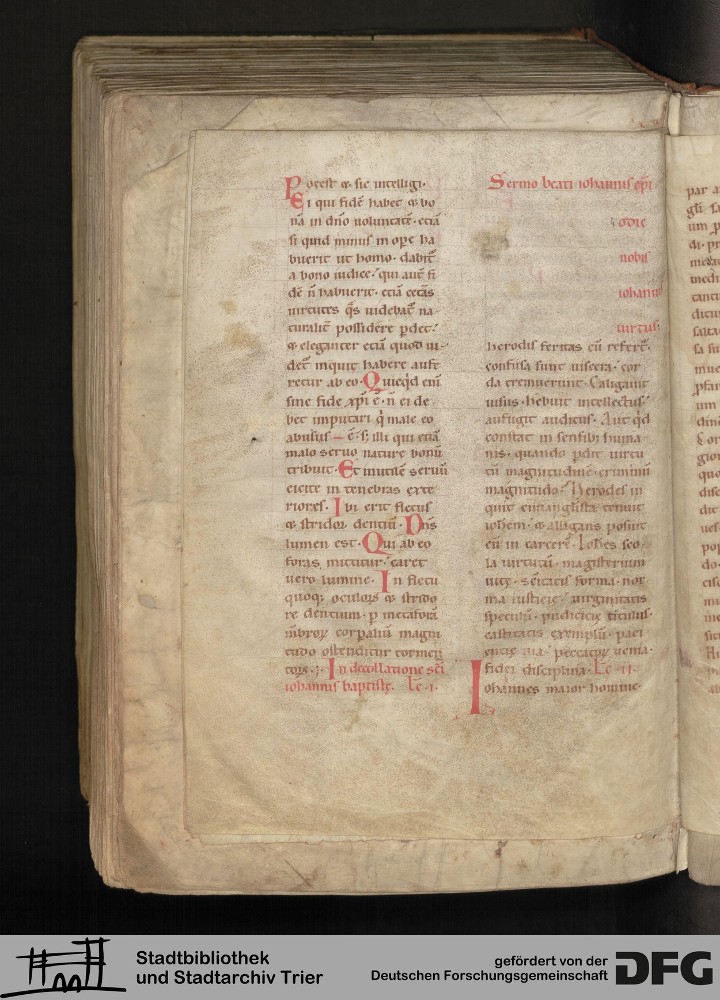 Potest & sic intelligi.
Ei qui fidē habet & bo
nā in dn̄o uoluntatē. etiā
si quid minus in ope ha
buerit ut homo. dabit᷑
a bono iudice. qui aut̄ fi
dē n̄ habuerit. etiā cetās
uirtutes q̄s uidebat᷑ na
turalit̄ possidere ꝑdet.
& eleganter etiā quod ui-
det᷑ inquit habere aufe
retur ab eo. Quicq̇d eni
sine fide xp̄i ē. n̄ ei de
bet imputari q̇ male eo
abusus ē. s; illi qui etiā
malo seruo nature bonū
tribuit. Et inutilē seruū
eicite in tenebras exte
riores. Ibi erit fletus
& stridor dentiū. Dn̄s
lumen est. Qui ab eo
foras mittitur. caret
uero lumine. In fletu
quoq; oculorū & strido
re dentium. ꝑ metaforā
mēbrorꝝ corpaliū magni
tudo ostenditur tormen
torꝝ. In decollatione sc̄i
iohannis baptistę. Lc̄ .i.
Sermo beati iohannis ep̄i
odie
nobis
iohannis
uirtus.
herodis feritas cū refert᷑.
confusa sunt uiscera. cor
da tremuerunt. Caligauit
uisus. hebuit intellectus.
aufugit auditus. Aut q̇d
constat in sensib; huma
nis. quando ꝑdit uirtu
tū magnitudinē. criminū
magnitudo. Herodes in
quit euuangelista tenuit
ioh̄em. & alligans posuit
eū in carcerē. Ioh̄es sco
la uirtutū. magisterium
uitę. sc̄itatis forma. nor
ma iusticię. uirginitatis
speculū. pudicicię titulus.
castitatis exemplū. peni
entię uia. peccatorꝝ uenia.
fidei disciplina. Lc̄ .ii.
Iohannes maior homine.
par a
um p
Stadtbibliothek
und Stadtarchiv Trier
gefördert von der
Deutschen Forschungsgemeinschaft
DFG